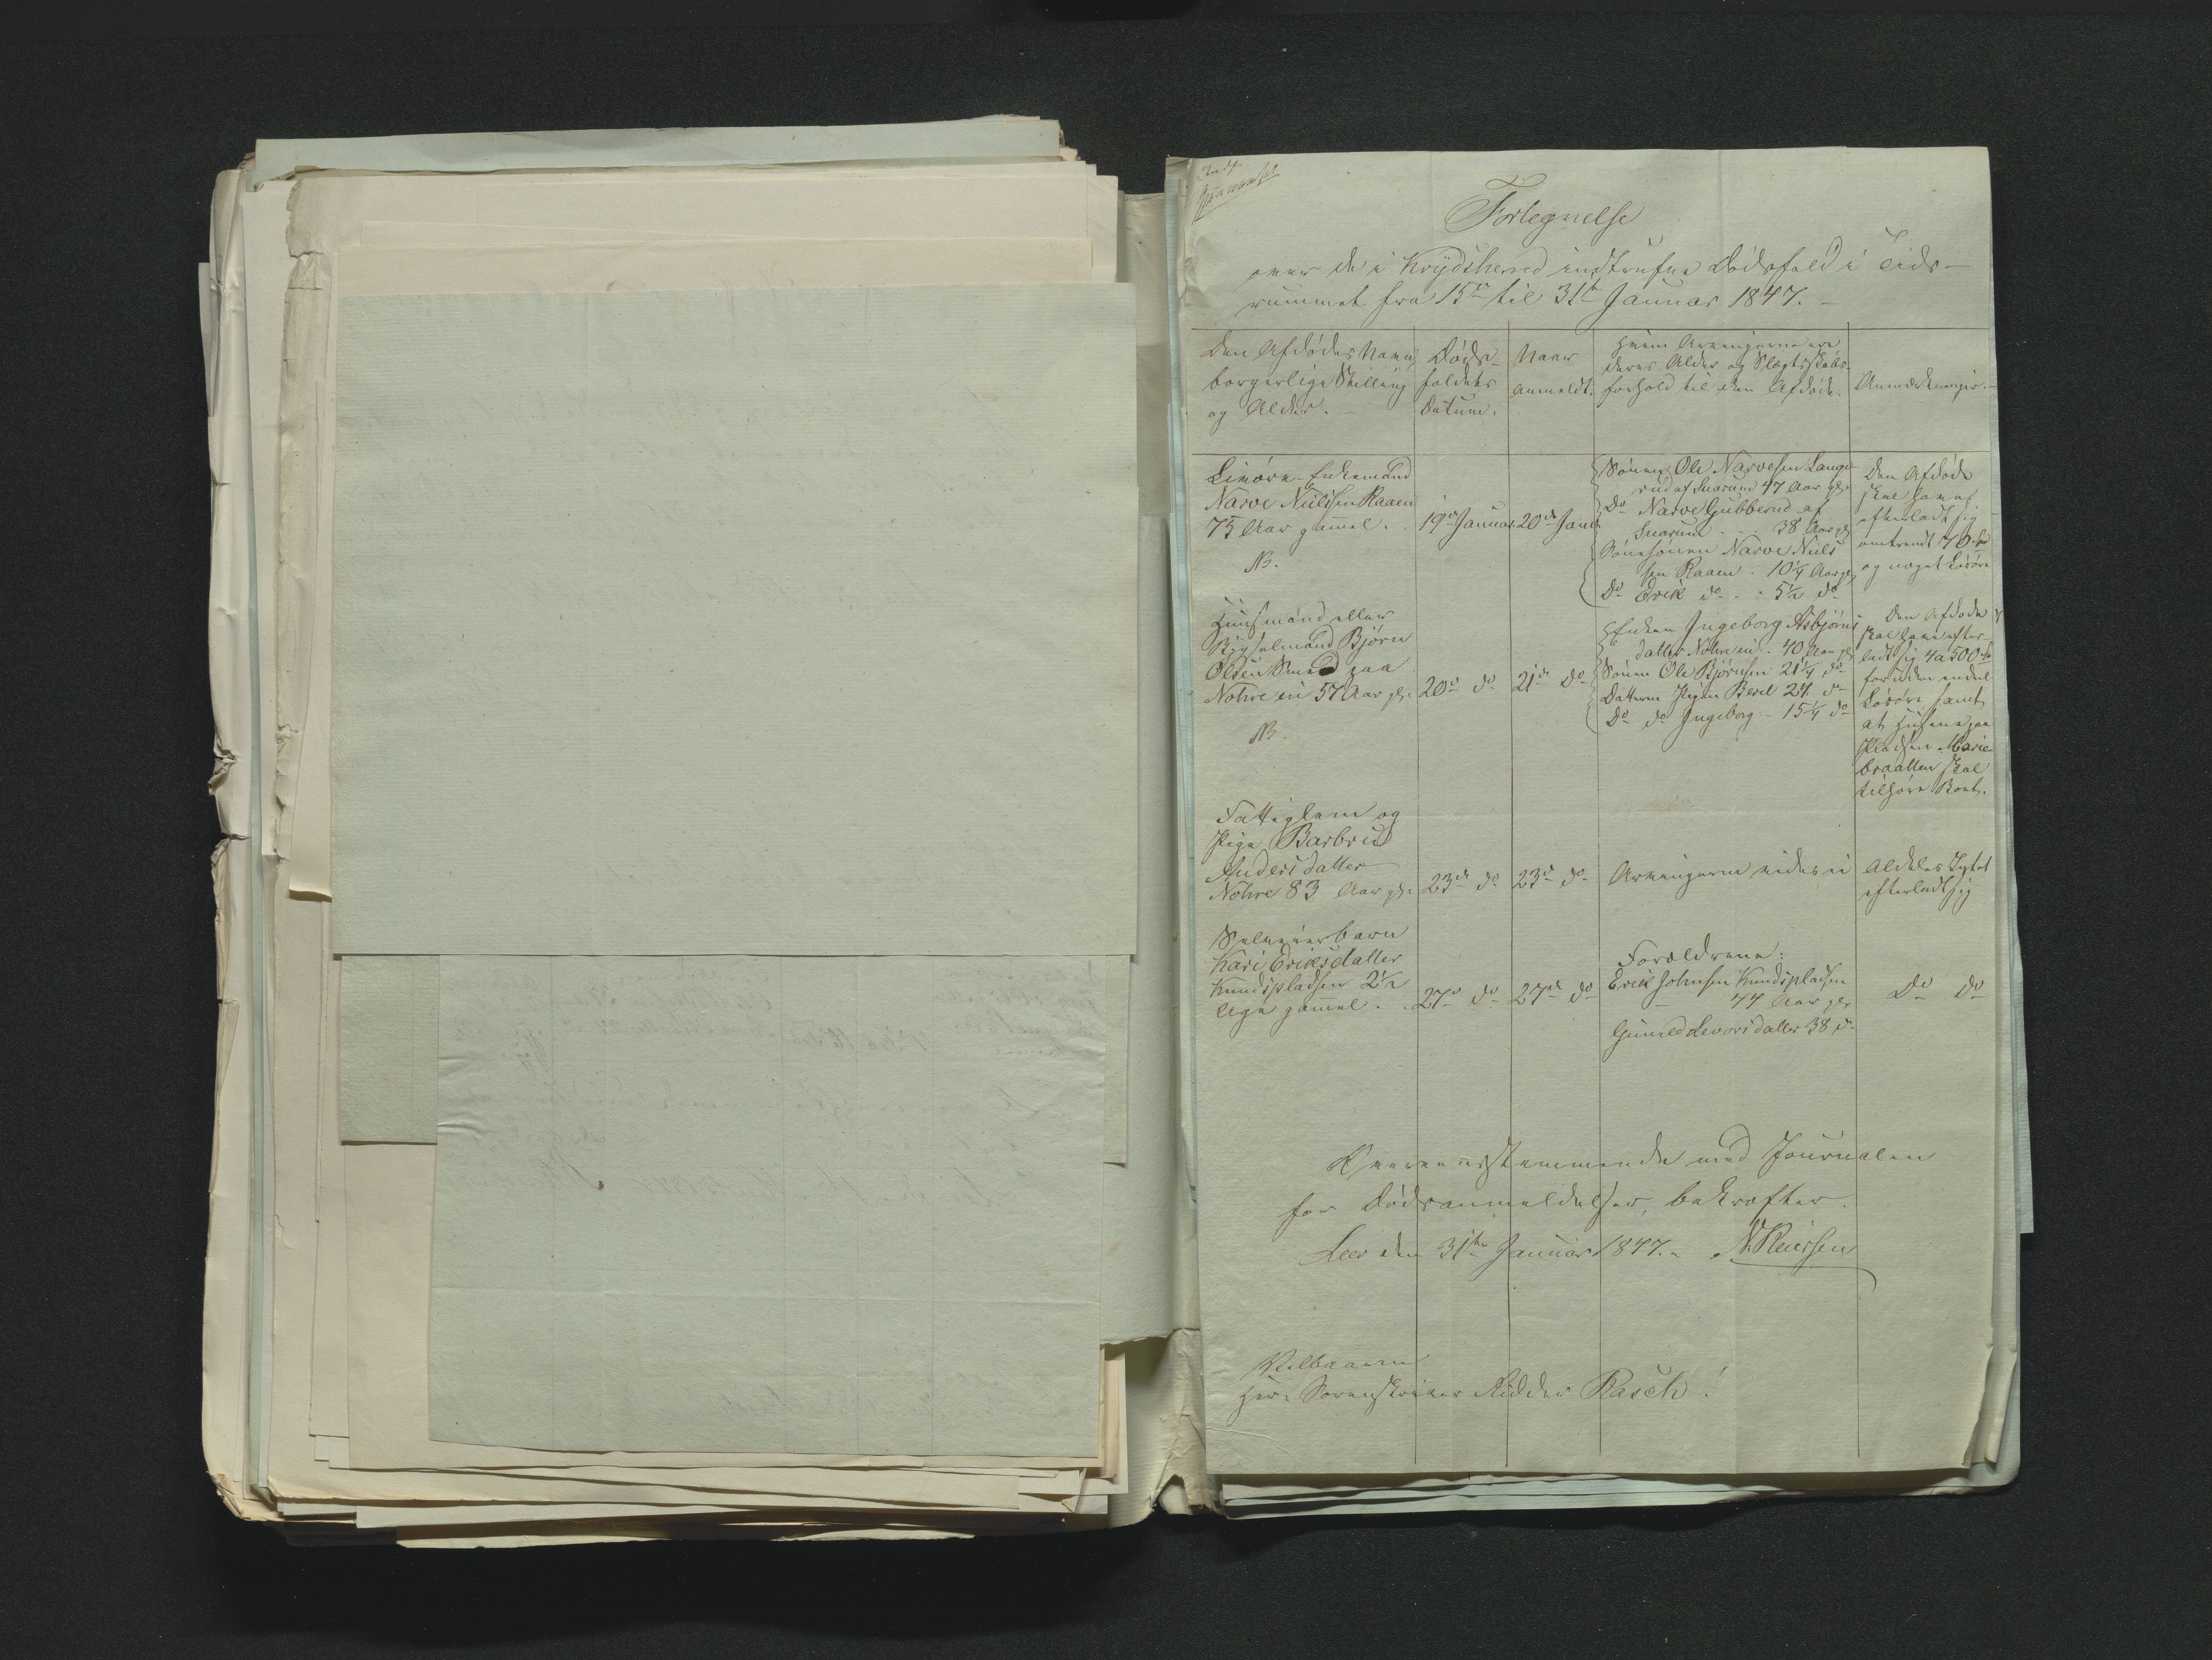 Fortegnelse
over de i Krydsherred indtrufne Dødsfald i Tids-
rummet fra 15de til 31te Januar 1847. -
Den Afdødes Navn,
borgerlige Stilling
og Alder. -
Døds-
faldets
Datum.
Naar
anmeldt.
Hvem Arvingerne ere
deres Alder og Slægtskabs-
forhold til den Afdøde.
Anmærkninger. -
Livøre-Enkemand
Narve Nielssen Raaen
75 Aar gamel.
NB.
19de Januar
20de Janr
Sønen Ole Narvesen Lange-
rud af Snarum 47 Aar gl.
Do Narve Gubberud af
Snarum - - 38 Aar gl
Sønesønen Narve Niels
sen Raaen - 10 1/4 Aar gl
Do Erik do - - 5 1/2 do
Den Afdøde
skal have
efterladt sig
omtrendt 70 Spd
og noget Løsøre
Huusmand eller
Bygselmand Bjørn
Olsen Smed paa
Nohre ei 57 Aar gl.
NB.
20de do
21de do
Enken Ingeborg Asbjørns
datter Nohre ei. 40 Aar gl
Sønen Ole Bjørnsen 21 1/4 do
Datteren Pigen Berel 24. do
Do do Ingeborg - 15 1/4 do
Den Afdøde
skal have efter-
ladt sig 4 a 500 Spd
foruden endel
Løsøre samt
at Husene paa
Pladsen Marie-
braatten skal
tilhøre Boet.
Fattiglem og
Pige Barbru
Andersdatter
Nohre 83 Aar gl.
23de do
23de do
Arvingerne vides ei
Aldeles Intet
efterladt sig
Selveierbarn
Kari Eriksdatter
Knudspladsen 2 1/2
Uge gamel. -
27de do
27de do
Forældrene:
Erik Johnsen Knudspladsen
44 Aar gl
Gunild Levorsdatter 38 do
Do do
Overeensstemmende med Journalen
for Dødsanmeldelser, bekræfter.
Lees den 31te Januar 1847. - N. Reiersen
Velbaarne
Herr Sorenskriver Ridder Rasch!